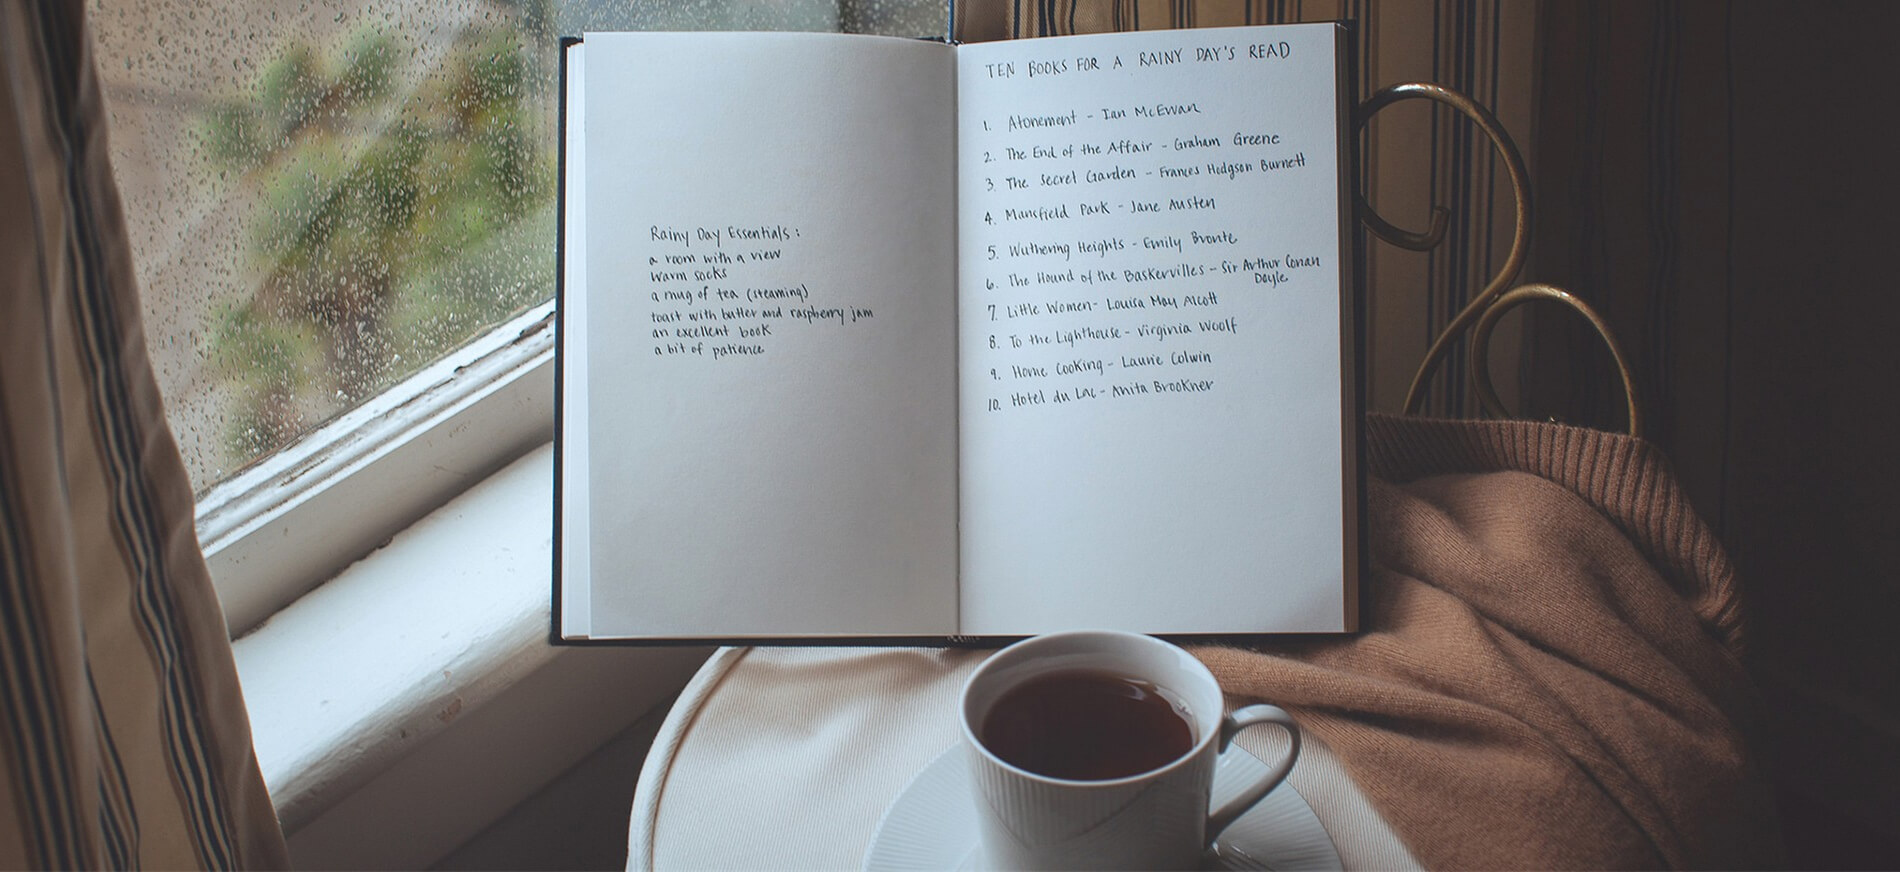 Rainy Day Essentials:
a room with a view
warm socks
a mug of tea (steaming)
toast with butter and raspberry jam
an excellent book
a bit of patience
TEN BOOKS FOR A RAINY DAY'S READ
1. Atonement - Ian McEwan
2. The End of the Affair - Graham Greene
3. The Secret Garden - Frances Hodgson Burnett
4. Mansfield Park - Jane Austen
5. Wuthering Heights - Emily Bronte
6. The Hound of the Baskervilles - Sir Arthur Conan
Doyle
7. Little Women - Louisa May Alcott
8. To the Lighthouse - Virginia Woolf
9. Home Cooking - Laurie Colwin
10. Hotel du Lac - Anita Brookner